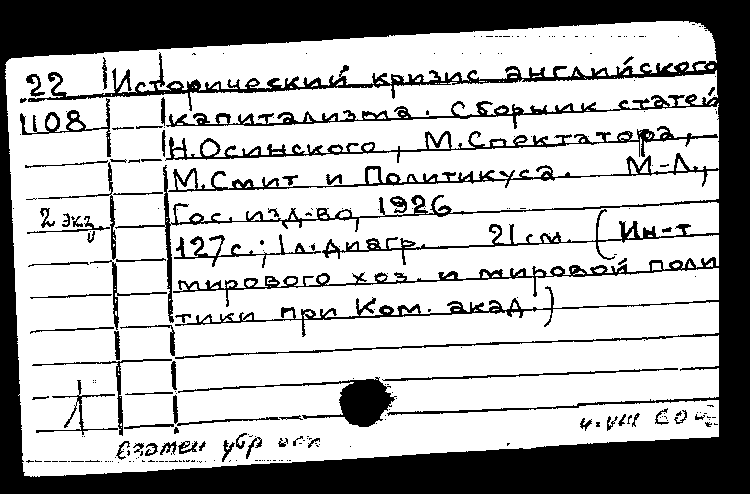 22 Исторический кризис английского
1108 капитализма. Сборник статей
Н.Осинского, М.Спектатора,
М.Смит и Политикуса. М.-Л.,
2 экз. Гос. изд-во, 1926.
127с.; 1л.диагр. 21см. (Ин-т
мирового хоз. и мировой поли
тики при Ком. акад.)
1